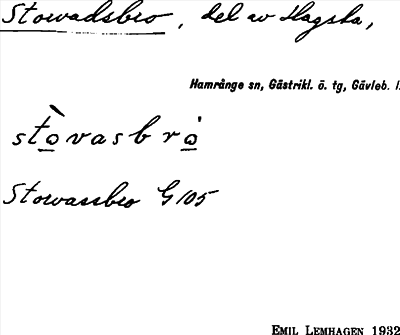 Stowadsbro, del av Hagsta,
Hamrånge sn, Gästrikl. ö. tg, Gävleb. l.
stòvasbrò
Stowassbro G 105
EMIL LEMHAGEN 1932